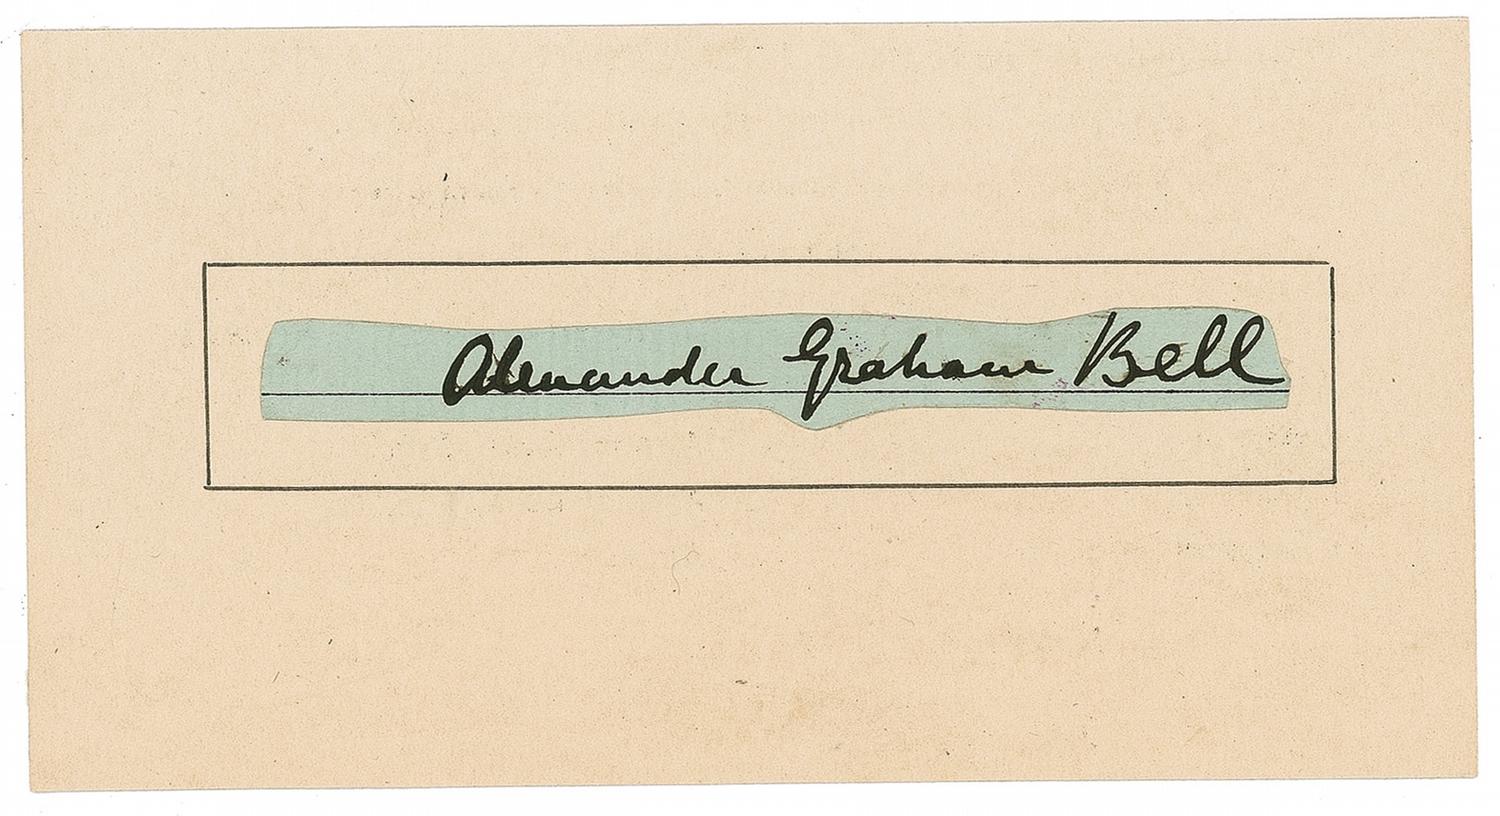 Alexander Graham Bell